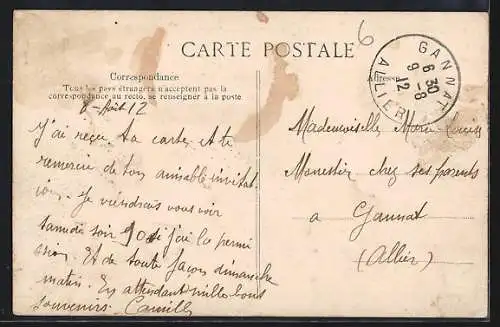 6
CARTE POSTALE
Correspondance
Tous les pays étrangers n'acceptent pas la
correspondance au recto. se renseigner à la poste
8 - Août 12
J'ai reçu ta carte et te
remercie de ton aimable invitat-
ion. Je viendrais vous voir
samedi soir 10 si j'ai la permi
ssion. Et de toute façon dimanche
matin. En attendant mille bons
souvenirs. Camille
Adresse
GANNAT
6 30
9 -8
12
ALLIER
Mademoiselle Marie Louise
Monestier chez ses parents
a Gannat
(Allier)